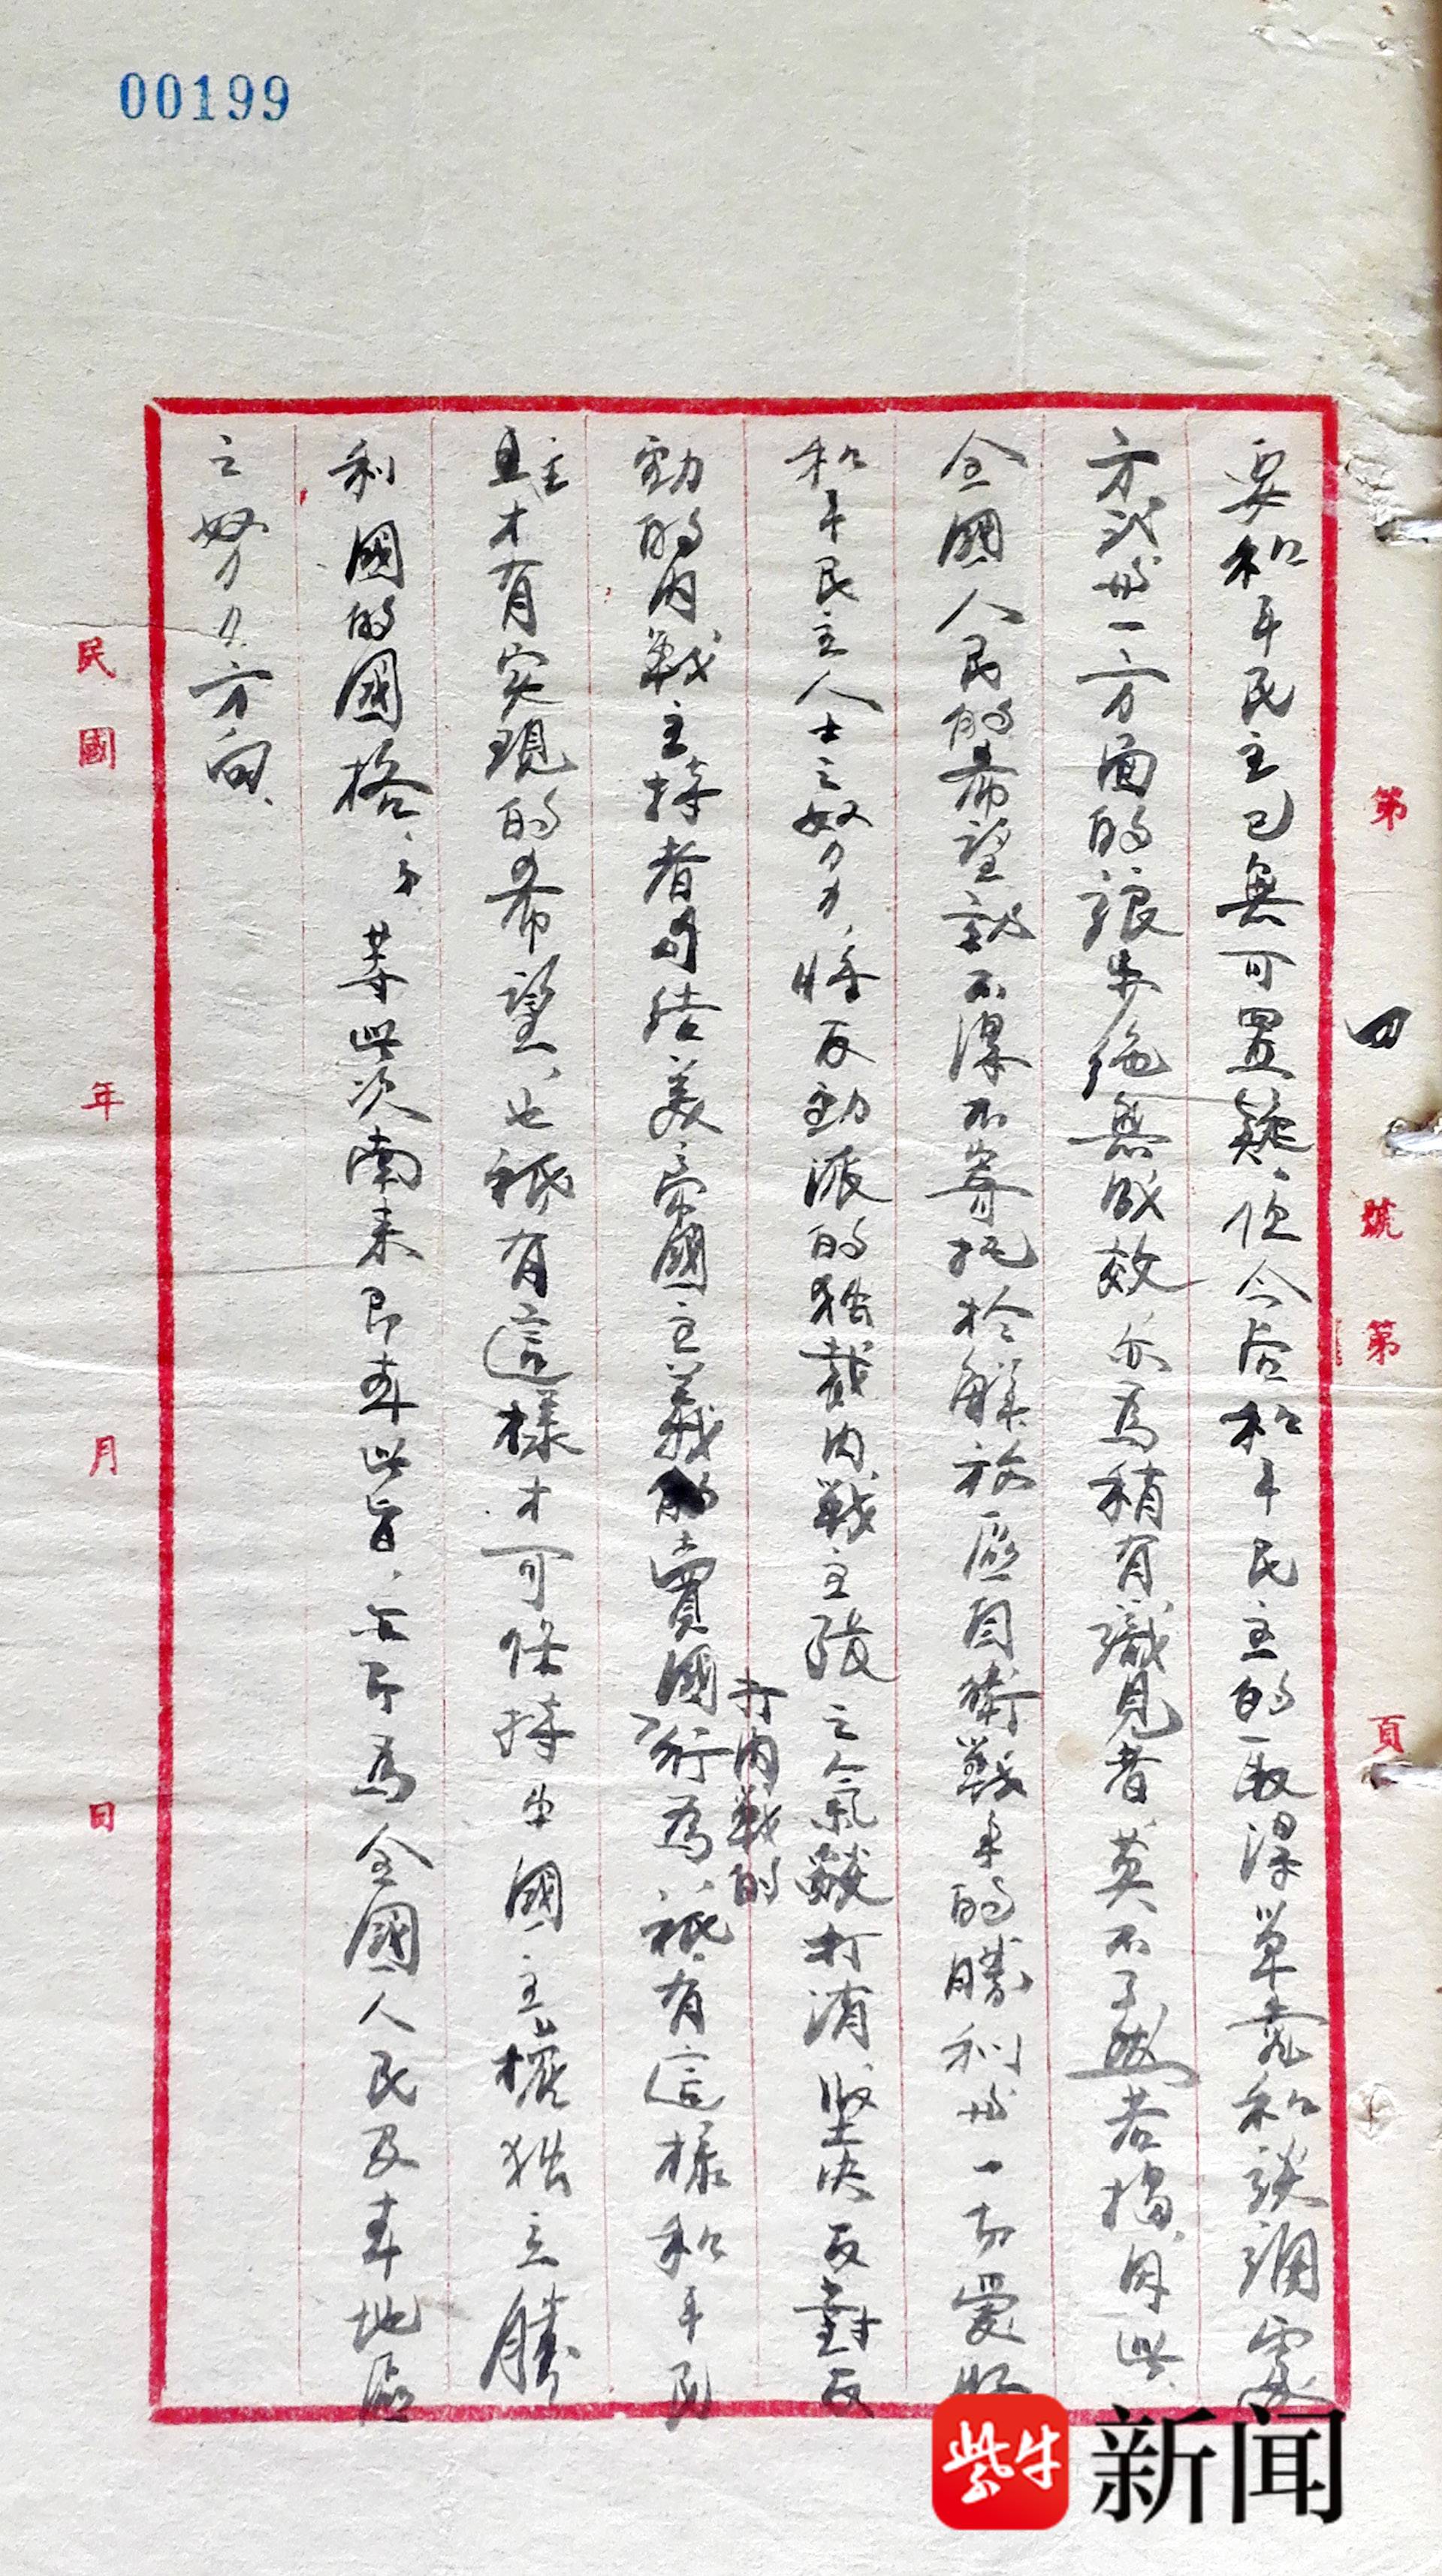 00199
第 四 號 第 頁
要和平民主已無可置疑、但今后和平民主的取得單靠和談調處
方式或一方面的讓步絶無成效亦為稍有識見者莫不了然若揭、因此、
全國人民的希望就不得不寄托於解放區自衛戰爭的勝利或一切愛好
和平民主人士之努力、將反動派的独裁内戰主張之氣燄打消、堅决反對反
動的内戰主持者勾結美帝國主義的賣國
打内戰的
行為、祇有這樣和平民
主才有实現的希望、也祇有這樣才可保持中國主權独立勝
利國的國格、等此次南来即本此旨、為全國人民及本地區
之努力方向、
民國 年 月 日
紫牛 新闻